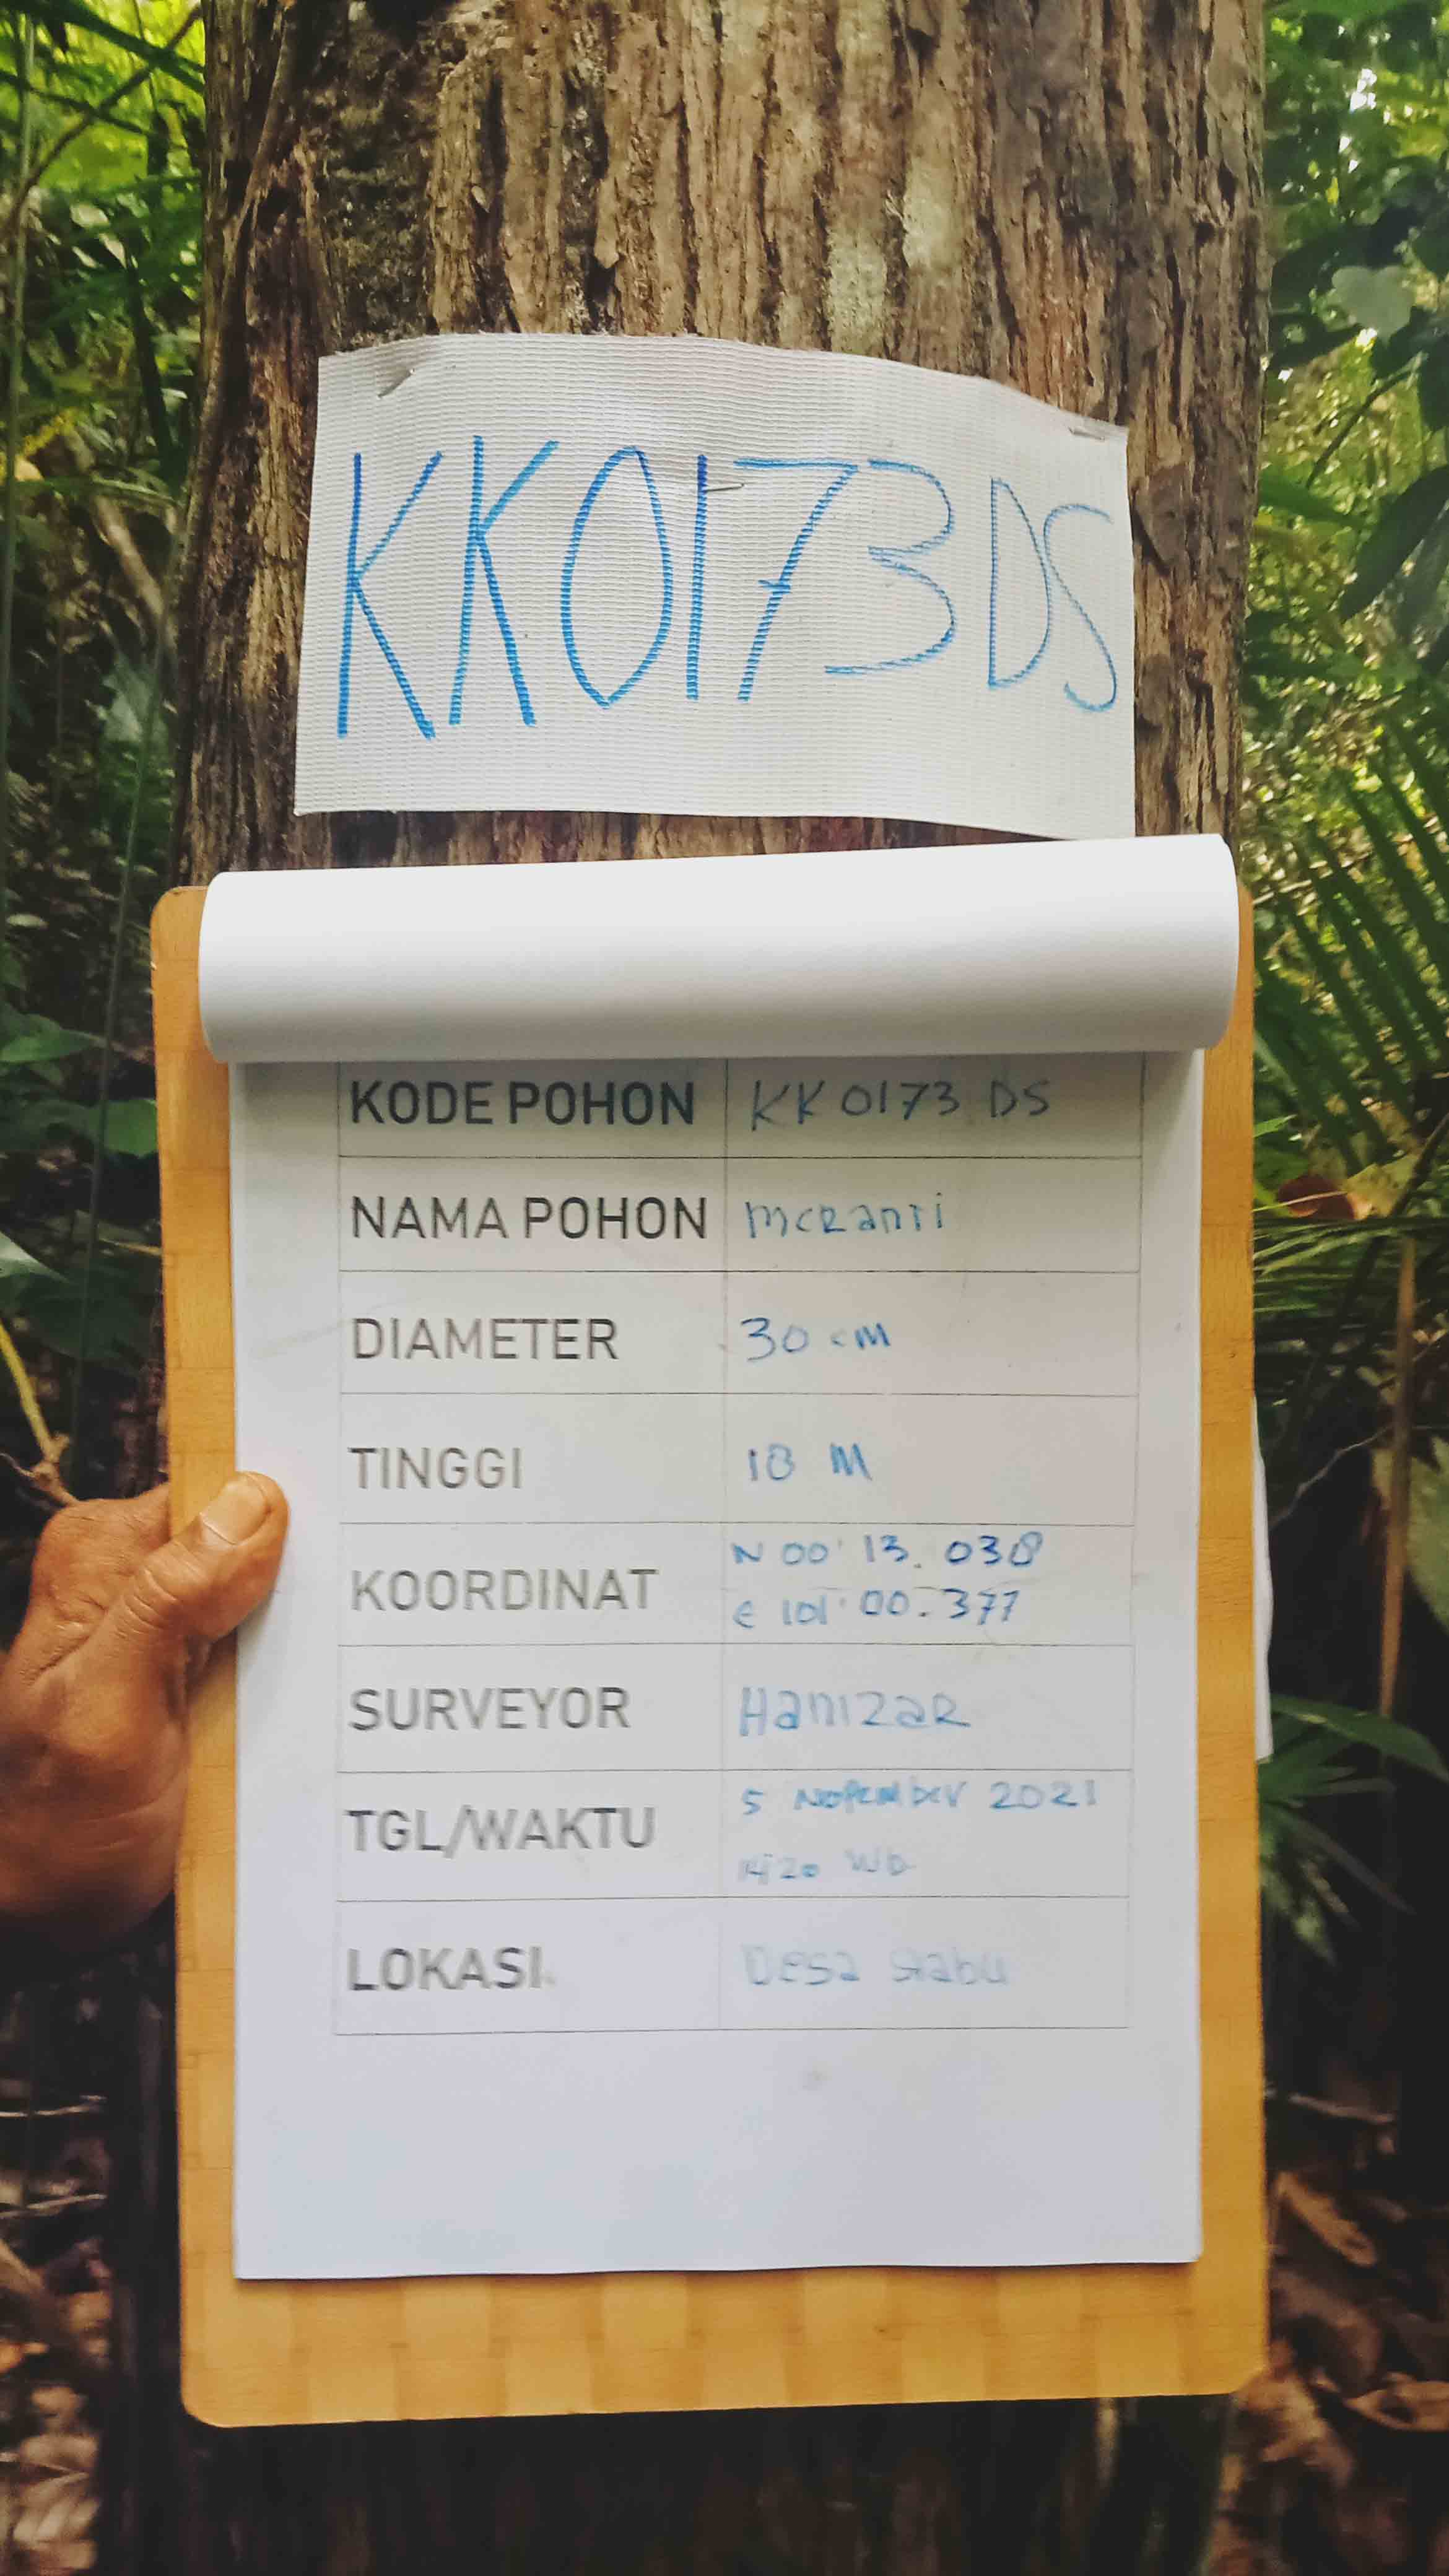 KK0173DS
KODE POHON KK 0173 DS
NAMA POHON meranti
DIAMETER 30 cm
TINGGI 18 M
KOORDINAT N 00° 13. 038
E 101° 00. 377
SURVEYOR Hanizar
TGL/WAKTU 5 Nopember 2021
14:20 Wb
LOKASI Desa